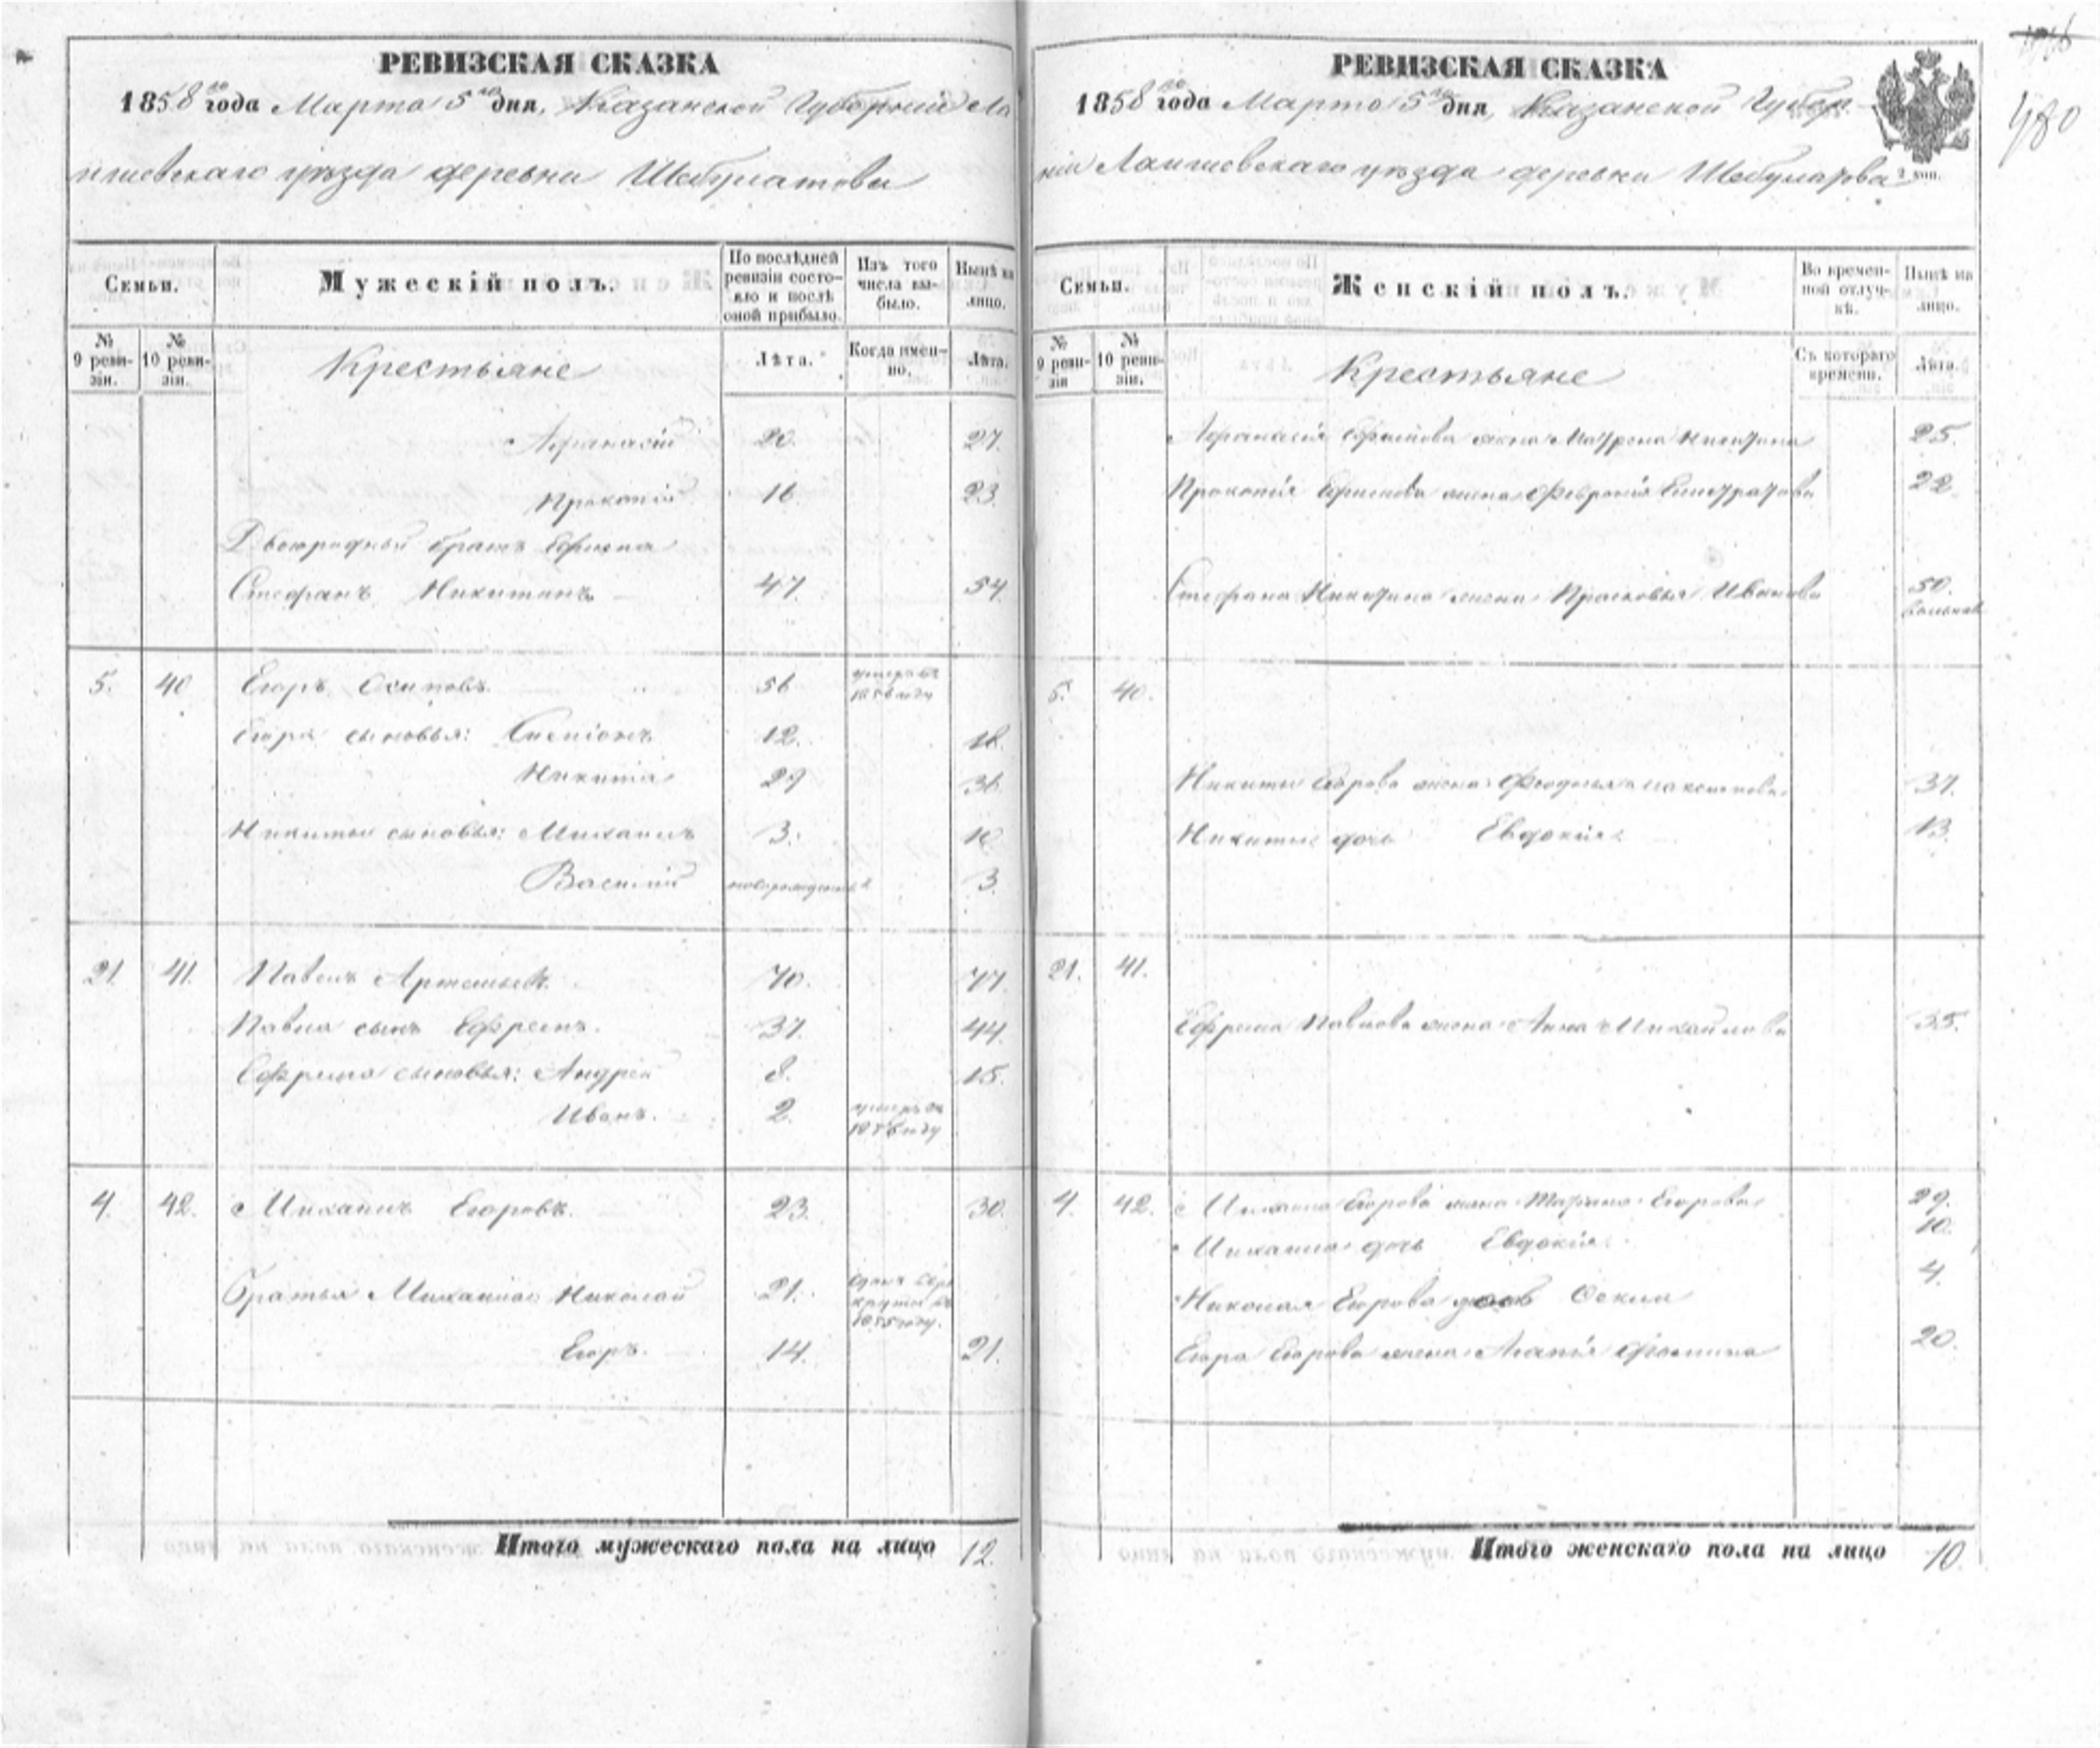 РЕВИЗСКАЯ СКАЗКА
1858 го года Марта 5 го дня, Казанской Губернии Ла
ишевскаго уѣзда деревни
Семьи.
Мужескій полъ.
По послѣдней ревизіи состояло и послѣ оной прибыло.
Изъ того числа выбыло.
Нынѣ на лицо.
№ 9 ревизіи.
№ 10 ревизіи.
Крестьяне
Лѣта.
Когда именно.
Лѣта.
Афанасій 20. 27.
Прокопій 16 23.
Двоюродный братъ Ефима
Стефанъ Никитинъ 47. 54.
5. 40 Егоръ Осиповъ 56 умеръ въ 1856 году
Егора сыновья: 12. 18.
Никита 29 36
Никиты сыновья: Михаилъ 3. 10
Василій новорожденный 3.
21. 41. Павелъ Артемьевъ. 70. 77.
Павла сынъ Ефремъ. 37. 44.
Ефрема сыновья: Андрей 8. 15.
Иванъ. 2. умеръ въ году
4. 42. Михаилъ Егоровъ. 23. 30.
Братья Михаила Николай 21. въ 1855 году.
Егоръ. 14. 21.
Итого мужескаго пола на лицо 12.
РЕВИЗСКАЯ СКАЗКА
1858 го года Марта 5 го дня, Казанской Губер
ніи Лаишевскаго уѣзда деревни
480
Семьи.
Женскій полъ.
Во временной отлучкѣ.
Нынѣ на лицо.
№ 9 ревизіи
№ 10 ревизіи.
Крестьяне
Съ котораго времени.
Лѣта.
Афанасія Ефимова жена Матрена Никитина 25.
Прокопія Ефимова жена Февронія 22.
Стефана Никитина жена Прасковья Иванова 50.
5. 40.
Никиты Егорова жена Максимова 37.
Никиты дочь Евдокія. 13.
21. 41.
Ефрема Павлова жена Анна Михайлова 35.
4. 42. Михаила Егорова жена Марина Егорова 29.
Михаила дочь Евдокія. 10.
Николая Егорова дочь 4.
Егора Егорова жена Агапія Фомина 20.
Итого женскаго пола на лицо 10.